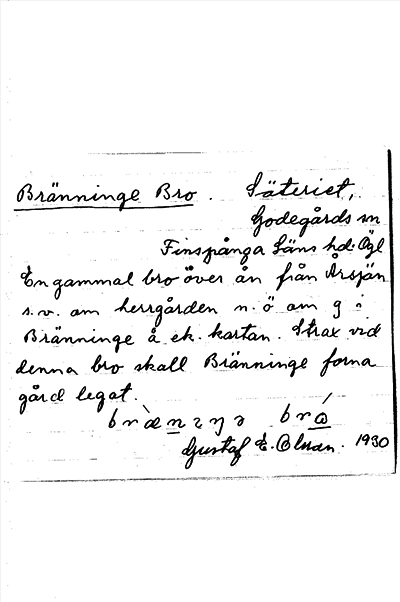 Bränninge Bro. Säteriet,
Godegårds sn
Finspånga Läns hd. Ögl
En gammal bro över ån från Årsjön
s.v. om herrgården n. ö om g i
Bränninge å ek. kartan. Strax vid
denna bro skall Bränninge forna
gård legat.
Gustaf E. Olsson. 1930